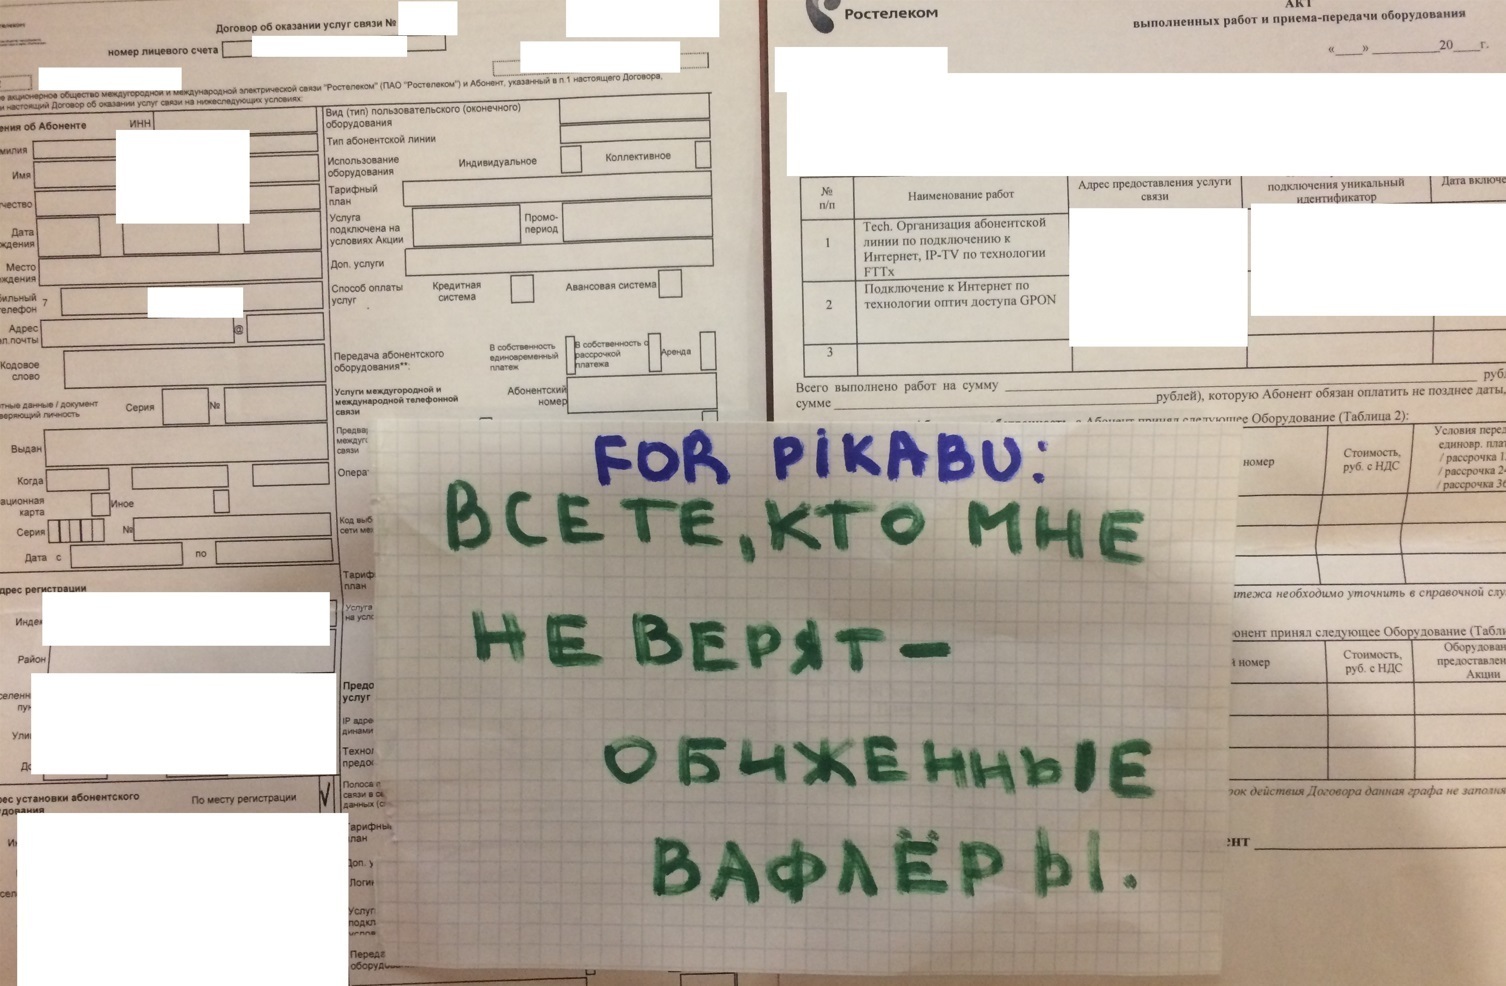 Договор об оказании услуг связи №
номер лицевого счета
е акционерное общество междугородной и международной электрической связи "Ростелеком" (ПАО "Ростелеком") и Абонент, указанный в п.1 настоящего Договора,
и настоящий Договор об оказании услуг связи на нижеследующих условиях:
ения об Абоненте ИНН
милия
Имя
чество
Дата
ждения
Место
ождения
бильный
телефон 7
Адрес
эл.почты @
Кодовое
слово
тные данные / документ
веряющий личность
Серия №
Выдан
Когда
ационная
карта
Иное
Серия №
Дата с по
дрес регистрации
Индек
Район
селенн
пун
Ули
До
рес установки абонентского
удования
По месту регистрации
V
Вид (тип) пользовательского (оконечного)
оборудования
Тип абонентской линии
Использование
оборудования
Индивидуальное
Коллективное
Тарифный
план
Услуга
подключена на
условиях Акции
Промо-
период
Доп. услуги
Способ оплаты
услуг
Кредитная
система
Авансовая система
Передача абонентского
оборудования**:
В собственность
единовременный
платеж
В собственность с
рассрочкой
платежа
Аренда
Услуги междугородной и
международной телефонной
связи
Абонентский
номер
Предва
междуг
связи
Опера
Код выб
сети ме
Тариф
план
Услуга
на усло
Предо
услуг
IP адре
динами
Технол
предо
Полоса п
связи в се
данных (с
Тарифны
план
Доп. у
Логин
Услуг
подкл
Переда
оборудо
Ростелеком
АКТ
выполненных работ и приема-передачи оборудования
«____» _________20____г.
№
п/п
Наименование работ
Адрес предоставления услуги
связи
подключения уникальный
идентификатор
Дата включе
1
Tech. Организация абонентской
линии по подключению к
Интернет, IP-TV по технологии
FTTx
2
Подключение к Интернет по
технологии оптич доступа GPON
3
Всего выполнено работ на сумму рубл
сумме рублей), которую Абонент обязан оплатить не позднее даты,
Абонент принял следующее Оборудование (Таблица 2):
номер
Стоимость,
руб. с НДС
Условия перед
единовр. плат
/ рассрочка 1
/ рассрочка 24
/ рассрочка 36
тежа необходимо уточнить в справочной слу
онент принял следующее Оборудование (Табли
й номер
Стоимость,
руб. с НДС
Оборудован
предоставлен
Акции
рок действия Договора данная графа не заполня
ент
FOR PIKABU:
ВСЕ ТЕ, КТО МНЕ
НЕ ВЕРЯТ –
ОБИЖЕННЫЕ
ВАФЛЁРЫ.